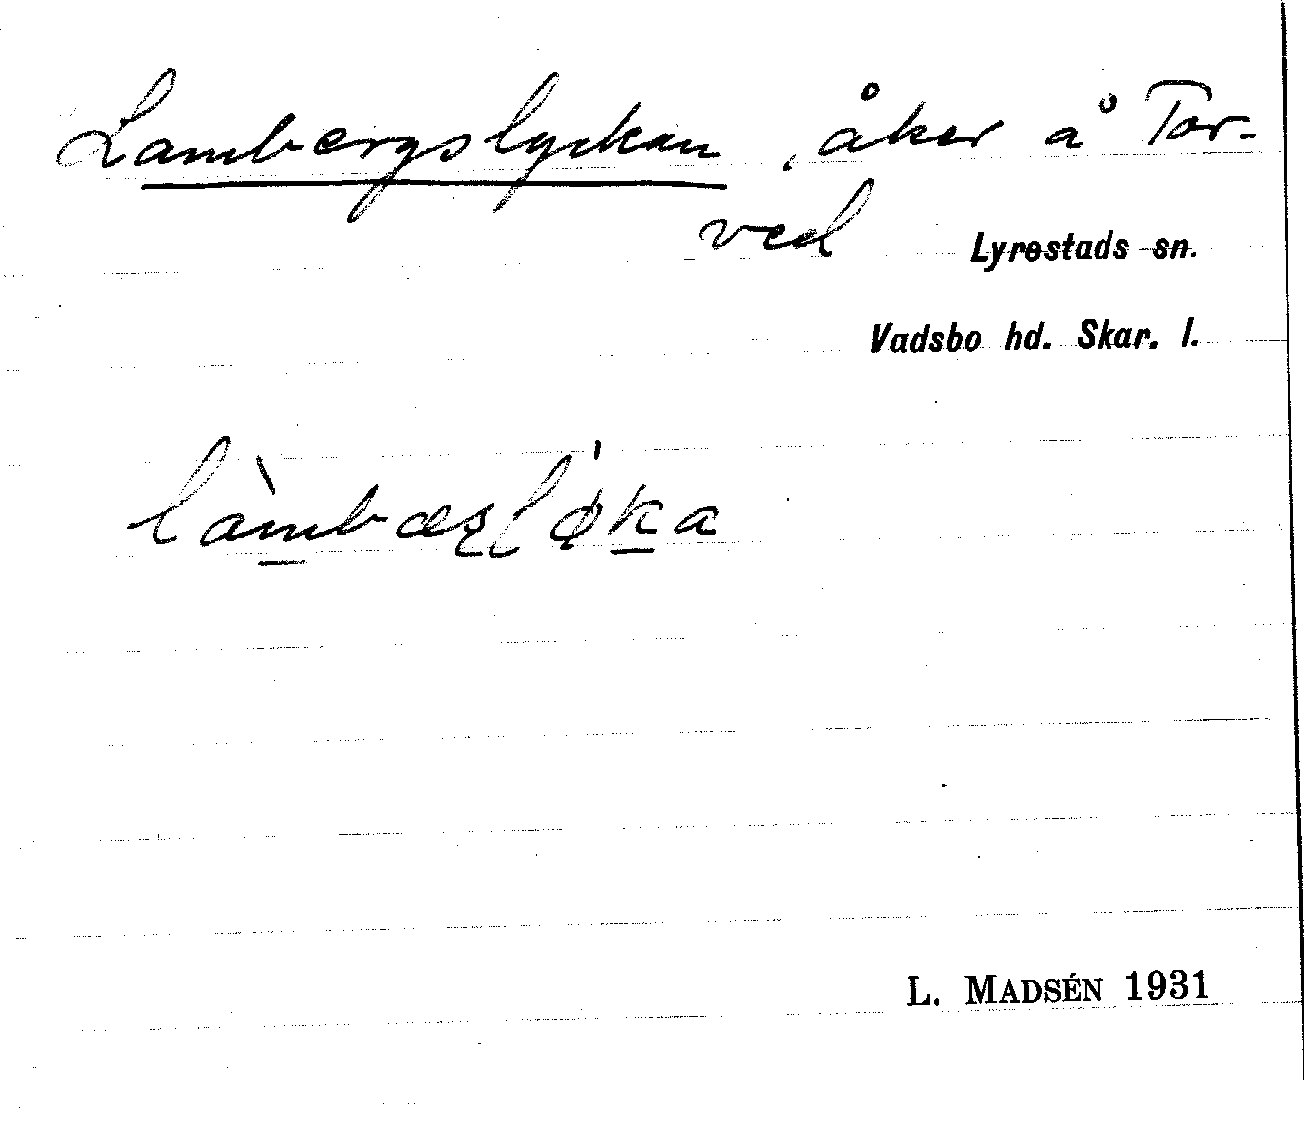 Lambergslyckan, åker å Tor-
ved
Lyrestads sn.
Vadsbo hd. Skar. l.
làmbæꞩlǿka
L. MADSÉN 1931